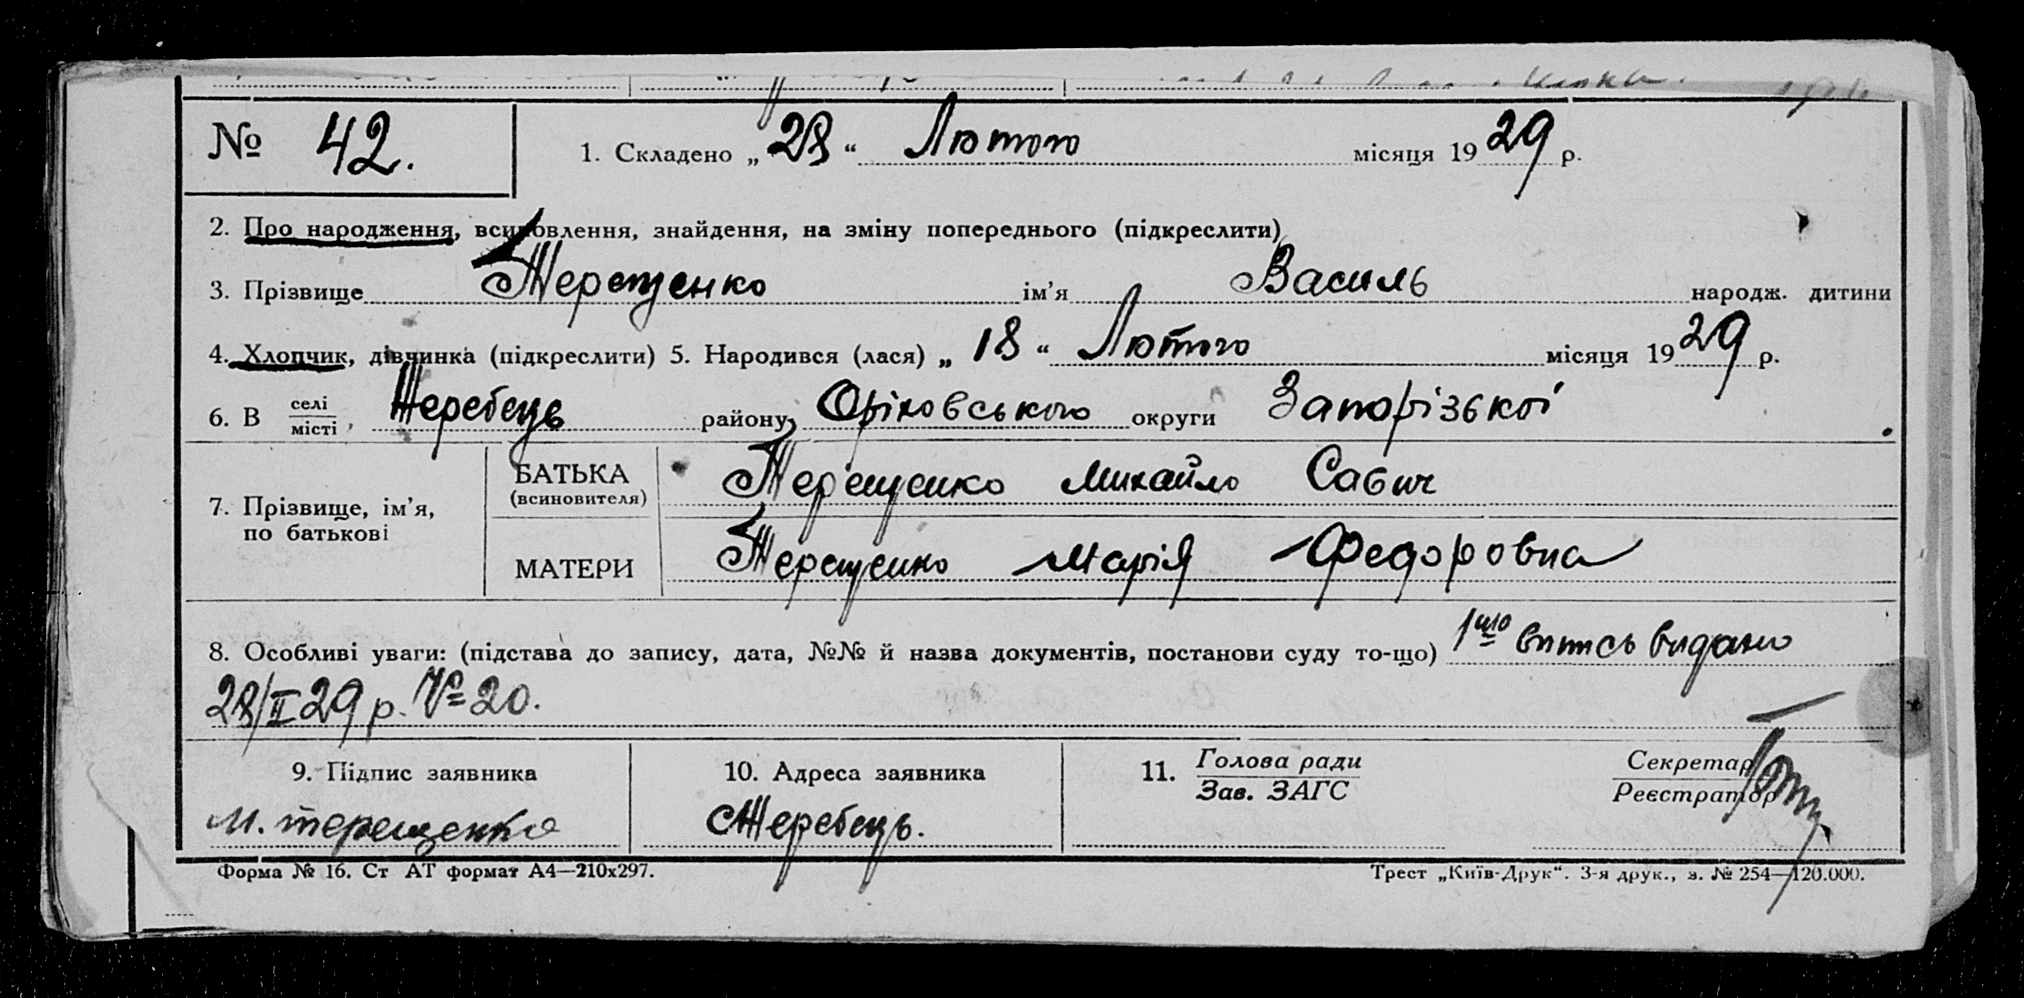 № 42. 1. Складено „28“ Лютого місяця 1929 р.
2. Про народження, всиновлення, знайдення, на зміну попереднього (підкреслити)
3. Прізвище Терещенко ім'я Василь народж. дитини
4. Хлопчик, дівчинка (підкреслити) 5. Народився (лася) „18“ Лютого місяця 1929 р.
6. В селі/місті Жеребець району Оріховського округи Запорізької
7. Прізвище, ім'я, по батькові
БАТЬКА (всиновителя) Терещенко Михайло Савич
МАТЕРИ Терещенко Марія Федоровна
8. Особливі уваги: (підстава до запису, дата, №№ й назва документів, постанови суду то-що) 1шу випись видано
28/II 29 р. № 20.
9. Підпис заявника 10. Адреса заявника 11. Голова ради/Зав. ЗАГС Секретар/Реєстратор
М. терещенко Жеребець.
Форма № 16. Ст АТ формат А4—210x297. Трест „Київ-Друк“. 3-я друк., з. № 254—120.000.